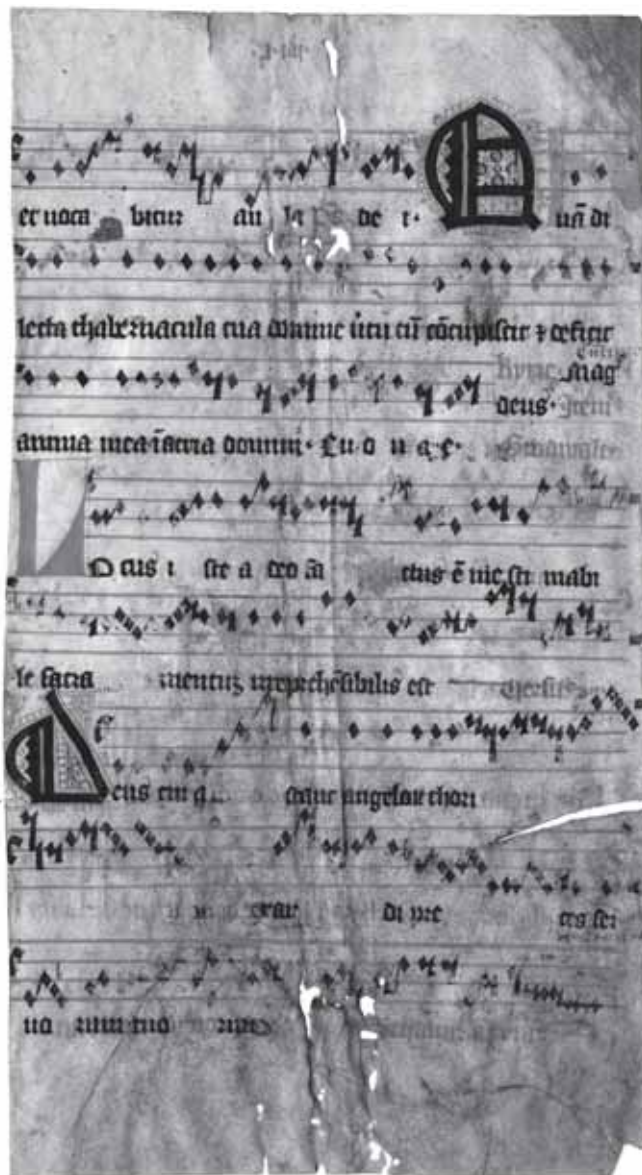 et uoca bitur au la de i· Quā di
lecta thabernacula tua domine ůtutū cōcupiscit ⁊ deficit
mag
deus·
anima mea ī atria domini· Eu o u a e·
Locus i ste a deo fā ctus ē inesti mabi
le sacra mentuʒ irrepehēsibilis est
Deus cui a stant angeloꝝ chori
exau di pre ces ser
uo rum tuo rum